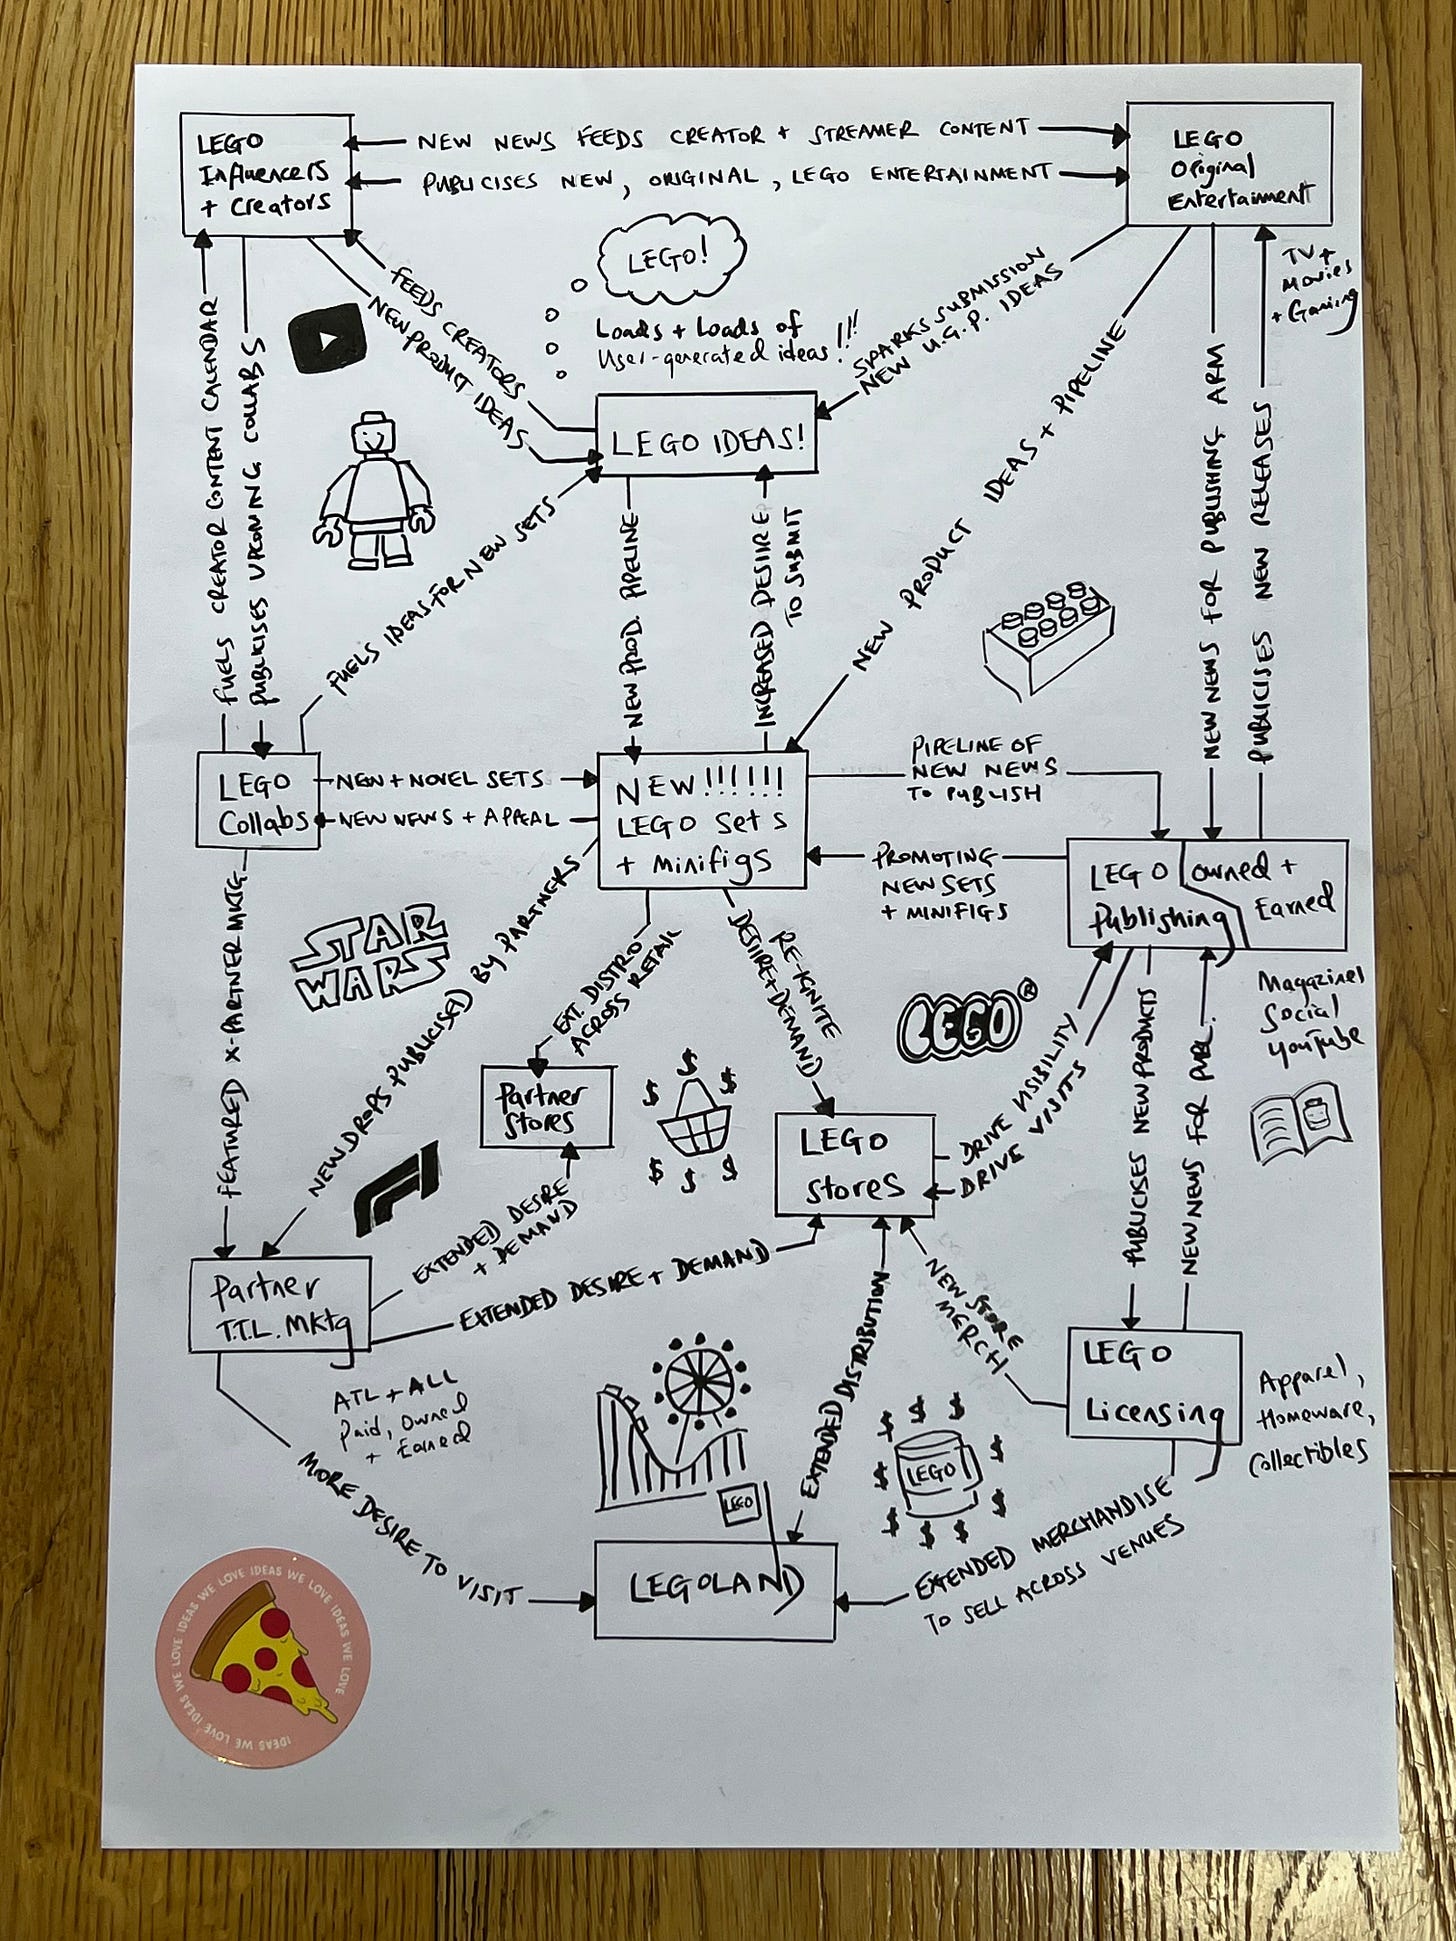 LEGO
Influencers
+ Creators
NEW NEWS FEEDS CREATOR + STREAMER CONTENT
PUBLICISES NEW, ORIGINAL, LEGO ENTERTAINMENT
LEGO
Original
Entertainment
TV +
Movies
+ Gaming
LEGO!
Loads + Loads of
User-generated ideas!!!
FEEDS CREATORS
NEW PRODUCT IDEAS
SPARKS SUBMISSION
NEW U.G.P. IDEAS
LEGO IDEAS!
FUELS CREATOR CONTENT CALENDAR
PUBLICISES UPCOMING COLLABS
FUELS IDEAS FOR NEW SETS
NEW PROD. PIPELINE
INCREASED DESIRE
TO SUBMIT
NEW PRODUCT IDEAS + PIPELINE
NEW NEWS FOR PUBLISHING ARM
PUBLICISES NEW RELEASES
LEGO
Collabs
NEW + NOVEL SETS
NEW NEWS + APPEAL
NEW!!!!!!
LEGO Sets
+ minifigs
PIPELINE OF
NEW NEWS
TO PUBLISH
PROMOTING
NEW SETS
+ MINIFIGS
LEGO
Publishing
Owned +
Earned
Magazines
Social
YouTube
STAR
WARS
FEATURED X-PARTNER MKTG
NEW DROPS PUBLICISED BY PARTNERS
EXT. DISTRO
ACROSS RETAIL
RE-IGNITE
DESIRE + DEMAND
LEGO®
Partner
Stores
$ $ $ $ $ $
LEGO
Stores
DRIVE VISIBILITY
DRIVE VISITS
PUBLICISES NEW PRODUCTS
NEW NEWS FOR PUBL.
Partner
T.T.L. Mktg
ATL + ALL
Paid, Owned
+ Earned
EXTENDED DESIRE
+ DEMAND
EXTENDED DESIRE + DEMAND
EXTENDED DISTRIBUTION
NEW STORE
MERCH
LEGO
Licensing
Apparel,
Homeware,
Collectibles
LEGO
LEGO
$ $ $ $ $ $ $ $ $ $
MORE DESIRE TO VISIT
LEGOLAND
EXTENDED MERCHANDISE
TO SELL ACROSS VENUES
IDEAS WE LOVE IDEAS WE LOVE IDEAS WE LOVE IDEAS WE LOVE IDEAS WE LOVE